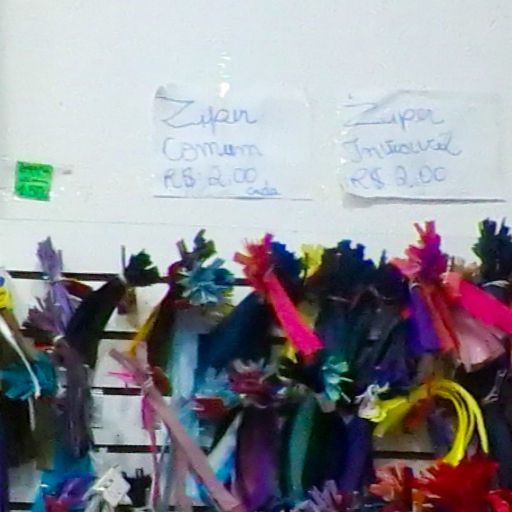 Ziper
Comum
R$ 2,00
cada
Ziper
Invisível
R$ 2,00